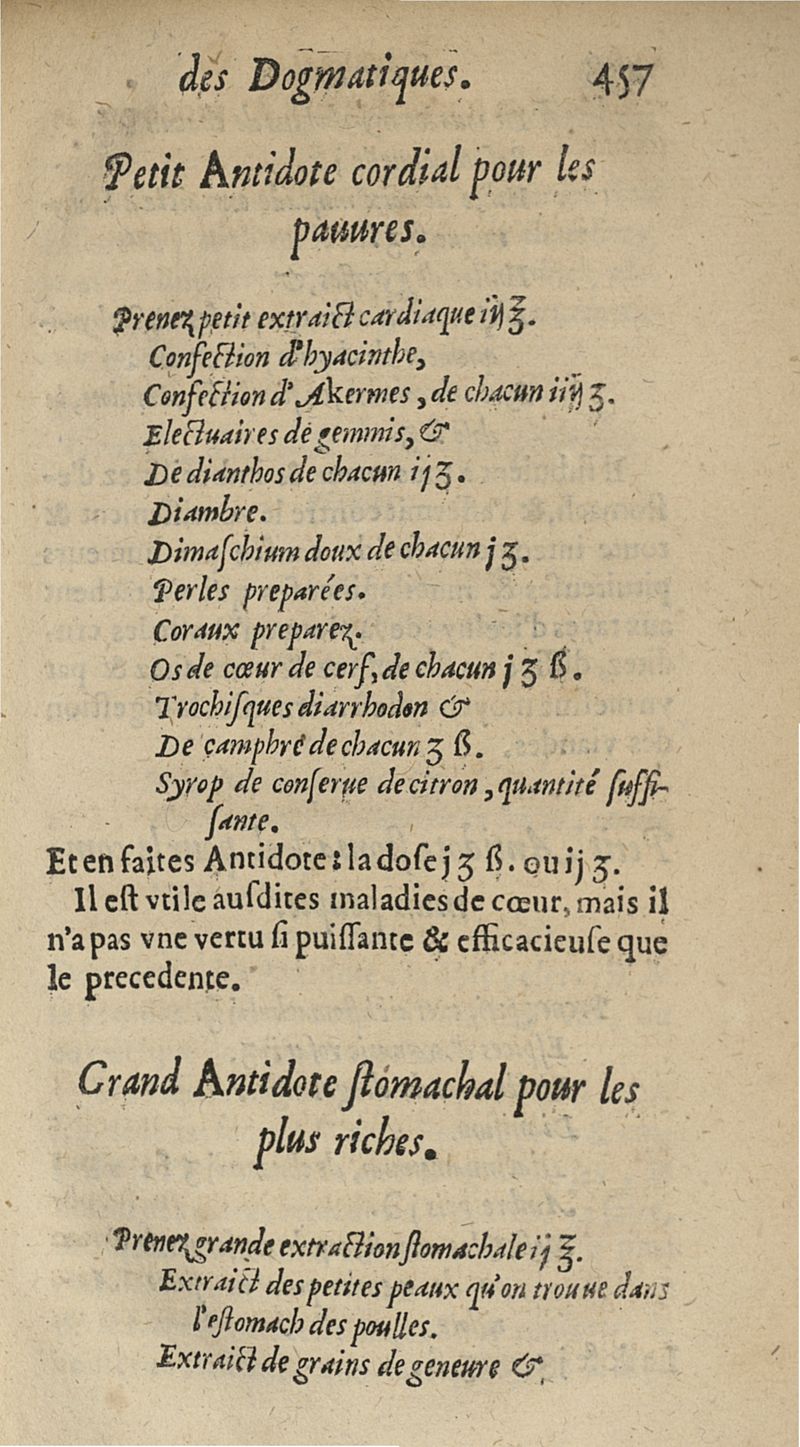 des Dogmatiques. 457
Petit Antidote cordial pour les
pauures.
Prenez petit extraict cardiaque iij ℥.
Confection d'hyacinthe,
Confection d'Akermes, de chacun iiij ʒ.
Electuaires de gemmis, &
De dianthos de chacun ij ʒ.
Diambre.
Dimaſchium doux de chacun j ʒ.
Perles preparées.
Coraux preparez.
Os de cœur de cerf, de chacun j ʒ ß.
Trochiſques diarrhodon &
De camphre de chacun ʒ ß.
Syrop de conſerue de citron, quantité ſuffi-
ſante.
Et en faites Antidote: la doſe j ʒ ß. ou ij ʒ.
Il eſt vtile auſdites maladies de cœur, mais il
n'a pas vne vertu ſi puiſſante & efficacieuſe que
le precedente.
Grand Antidote ſtomachal pour les
plus riches.
Prenez grande extraction ſtomachale ij ℥.
Extraict des petites peaux qu'on trouue dans
l'eſtomach des poulles.
Extraict de grains de geneure &